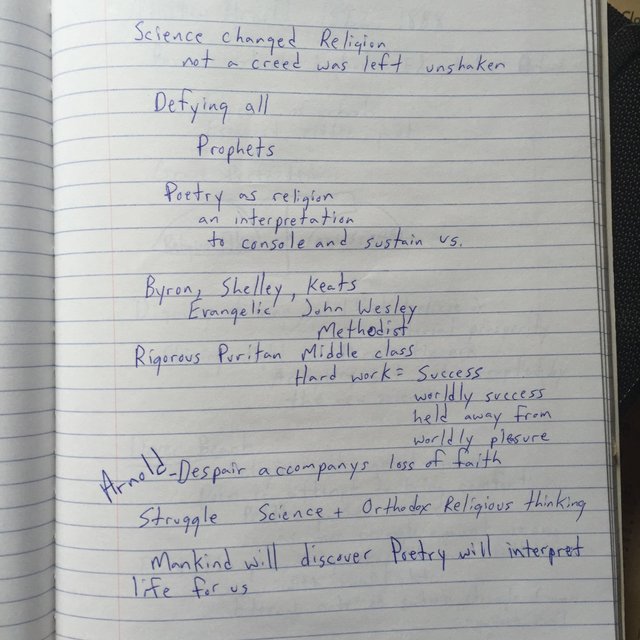 Science changed Religion
not a creed was left unshaken
Defying all
Prophets
Poetry as religion
an interpretation
to console and sustain us.
Byron, Shelley, Keats
Evangelic John Wesley
Methodist
Rigorous Puritan Middle class
Hard work = Success
worldly success
held away from
worldly plesure
Arnold - Despair accompanys loss of faith
Struggle Science + Orthodox Religious thinking
Mankind will discover Poetry will interpret
life for us